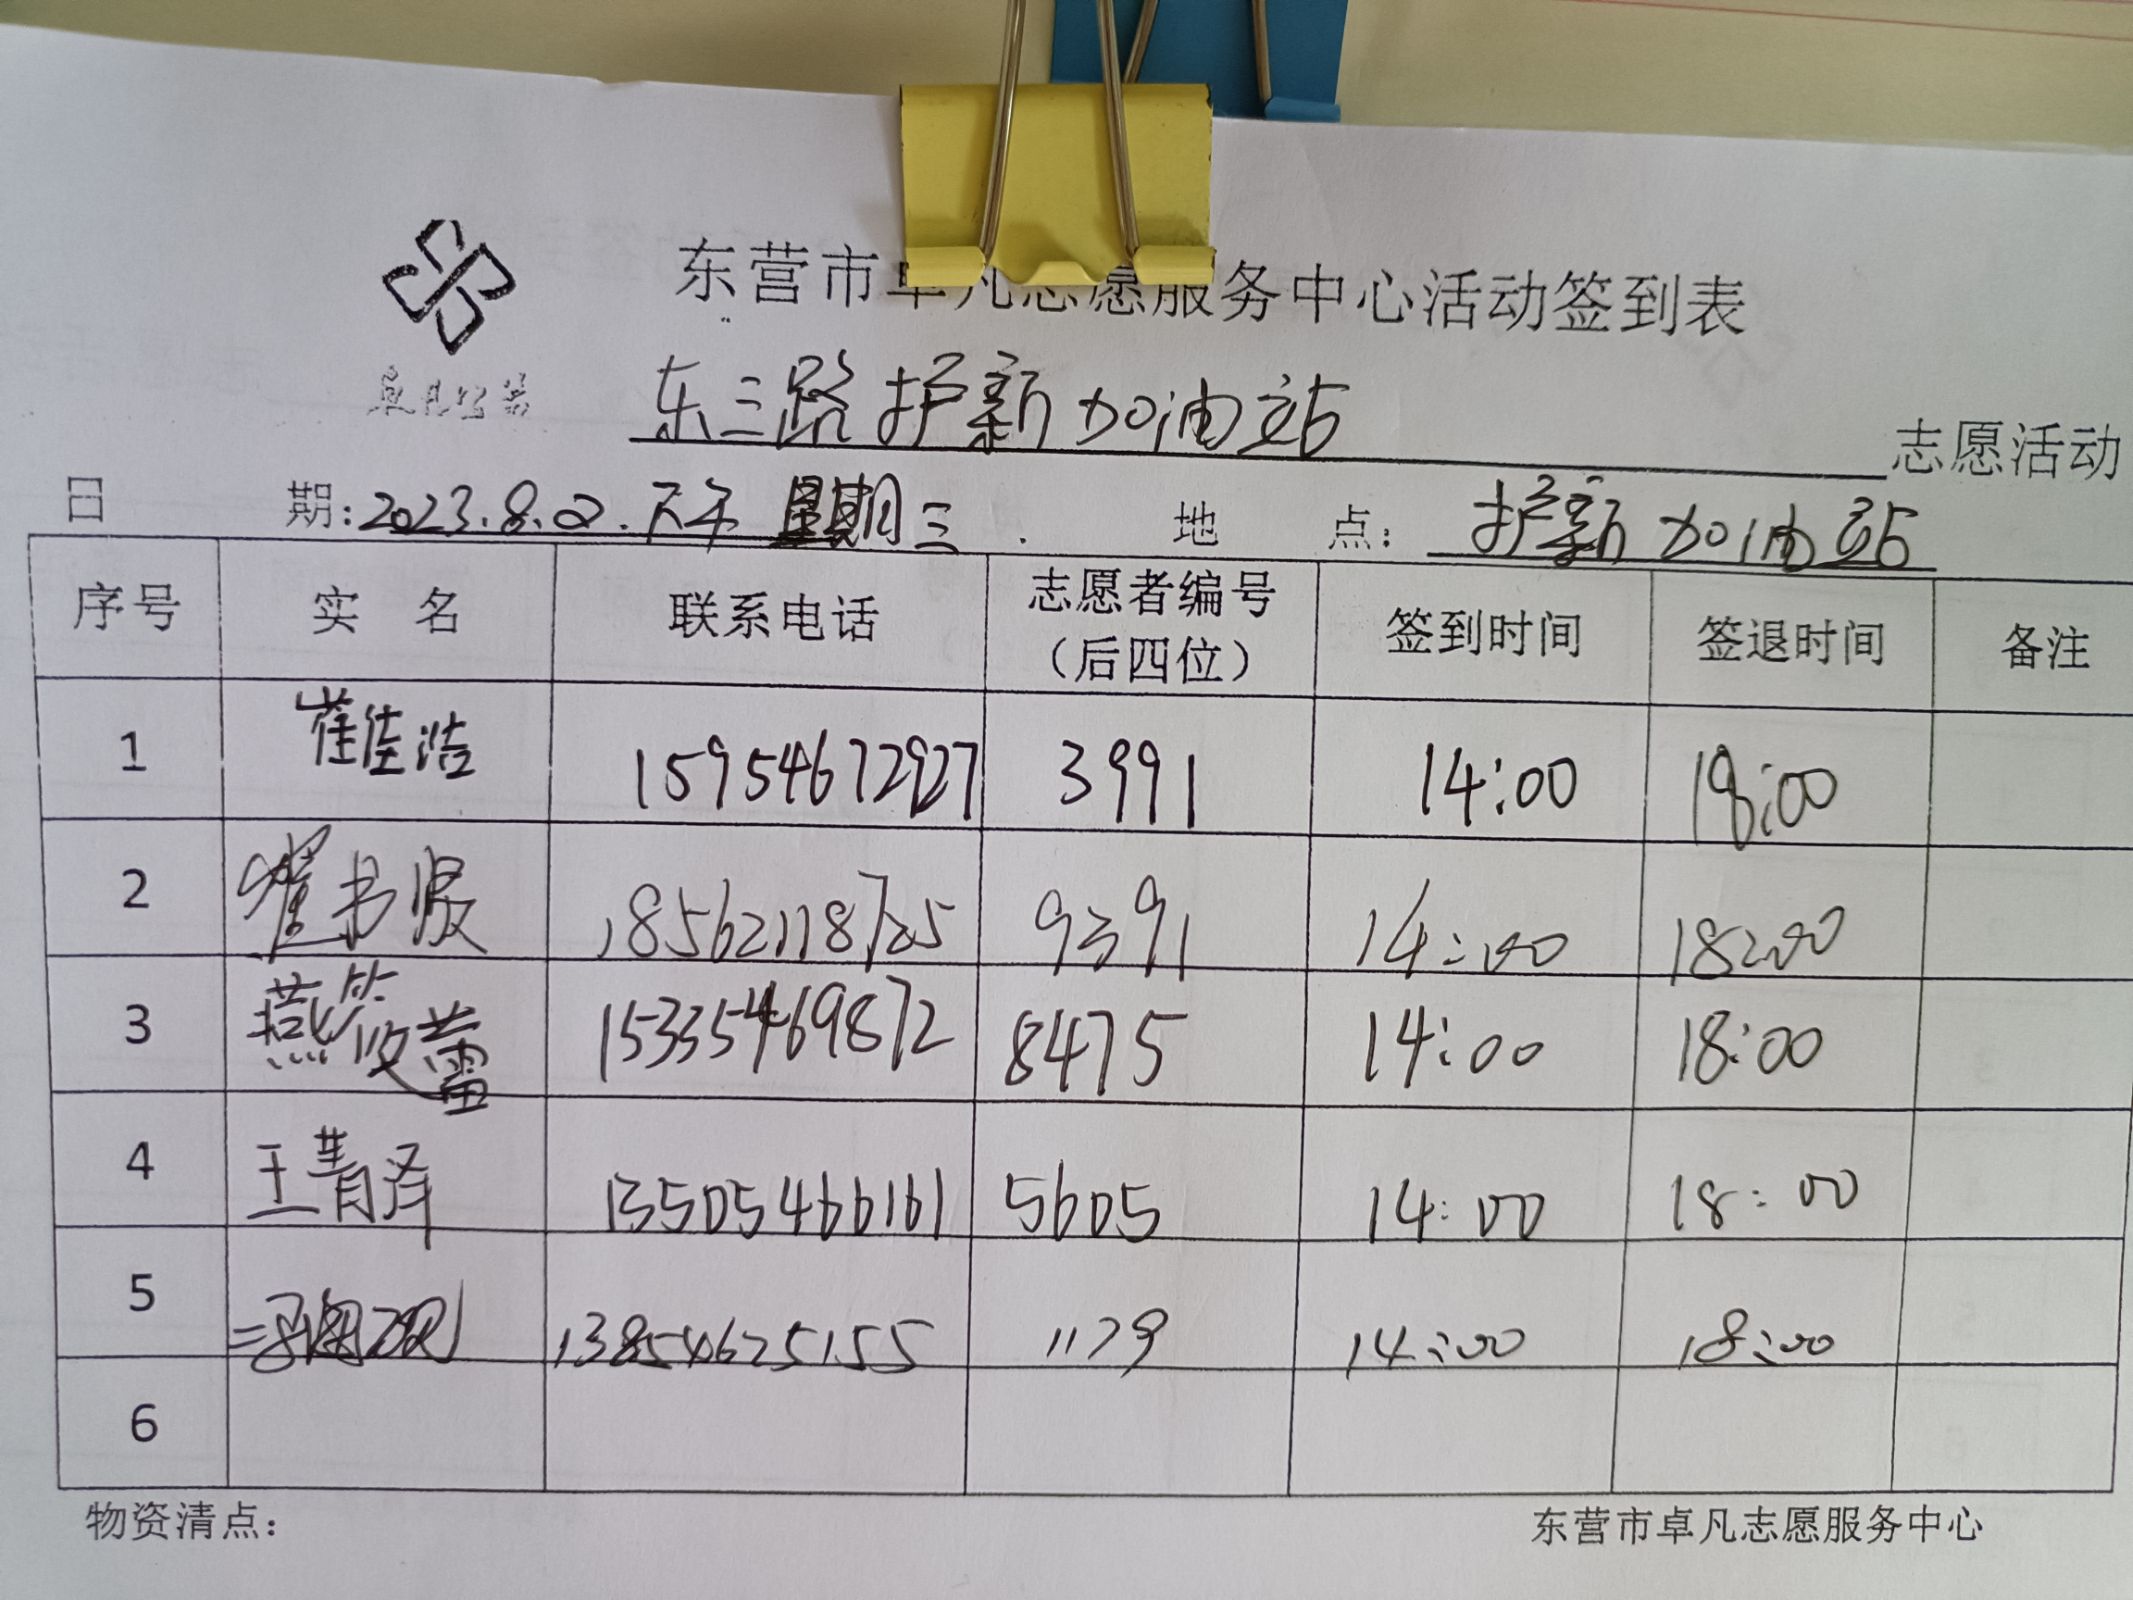 东营市卓凡志愿服务中心活动签到表
卓凡公益
东三路护新加油站 志愿活动
日 期: 2023.8.2.下午 星期三. 地 点: 护新加油站
序号 实 名 联系电话 志愿者编号（后四位） 签到时间 签退时间 备注
1 崔佳洁 15954672927 3991 14:00 18:00
2 崔书媛 18562118725 9391 14:00 18:00
3 燕筱蕾 15335469872 8475 14:00 18:00
4 王菁泽 13505466161 5605 14:00 18:00
5 13854625155 1179 14:00 18:00
6
物资清点: 东营市卓凡志愿服务中心